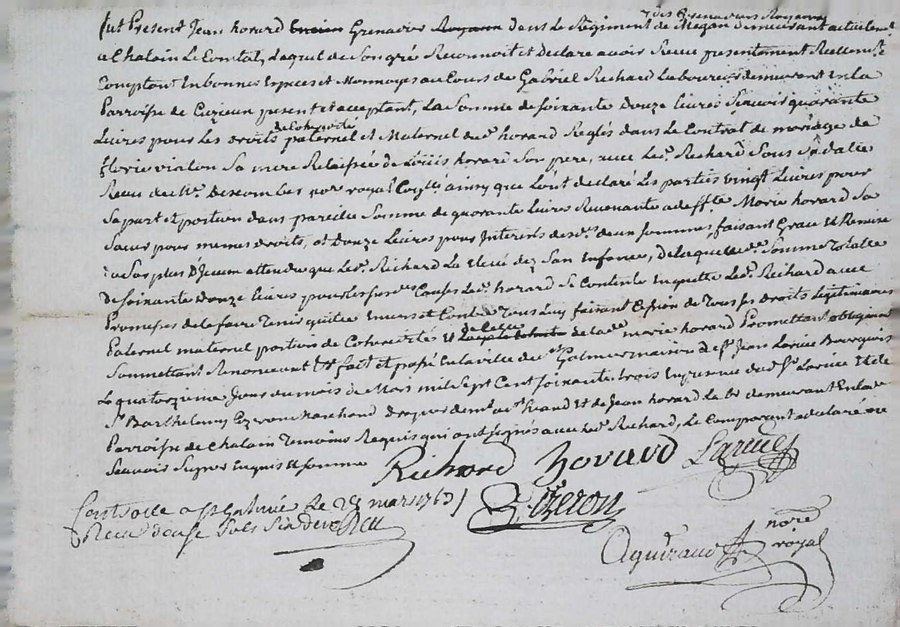 des Grenadiers Royaux
fut Present Jean hovard Grenadier dans le Regiment de Megan demeurant actuelemt
a Chalain Le Comtal, Lequel de Son gré Reconnoit et Declare avoir Receu presentement Reellemt
Comptant En bonnes Especes et Monnoyes au Cours de Gabriel Richard Laboureur demeurant En la
Parroisse de Cuzieux present et acceptant, La Somme de Soixante Douze Livres Scavoir quarante
Livres pour Les Droits de Cohéredité paternel et Maternel du d. hovard Reglés dans le Contrat de mariage de
Sa mere Relaissée de Loüis hovard Son pere, avec Led. Richard Sous Sa datte
Receu de Me. Descombes nore royal ainsy que L'ont declaré Les parties vingt Livres pour
Sa part et portion dans pareille Somme de quarante Livres Revenante a deffte Marie hovard Sa
Sœur pour memes droits, et Douze Livres pour Interets desd. deux Sommes, faisant Grace Et Remise
du Surplus D'Iceux attendu que Led. Richard La Elevé dez Son Enfance, De laquelle de. Somme Totalle
De Soixante Douze Livres pour les Susdes Causes Led. hovard Se Contente En quitte Led. Richard avec
Promesses de le faire Tenir quitte Envers et Contre Tous Luy faisant Cession de Tous Ses Droits Legitimaires
Paternel maternel portion de Cohéredité Et de celle de lad. marie hovard Promettant obligeant
Soumettant Renonceant Et fait et passé En la ville de St. Galmier maison de Sr. Jean Larüe Bourgeois
Le quatorzieme Jour du mois de Mars mil Sept Cent Soixante trois En presence dud. Sr. Larüe Et de
Sr. Barthelemy Ezeron Marchand et de Jean hovard demeurant En lad.
Parroisse de Chalain Temoins Requis qui ont Signés avec led. Richard, Le Comparant a declaré ne
Scavoir Signer Enquis Et Somme
Richard hovard Larüe
Ezeron
Controllé a St Galmier Le 25 mars 1763
Receu douze Sols Six den
Aguiraud nore
royal